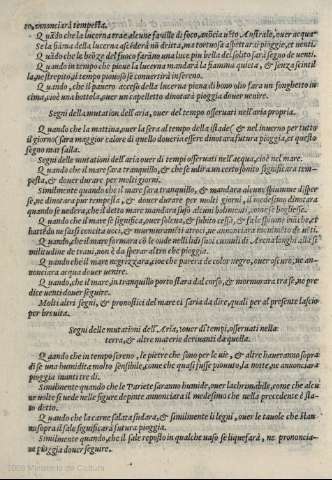 to, annonciarà tempesta.
Quando, che la lucerna trae alcune faville di foco, anõcia uẽto Australe, ouer acqua
Se la fiama della lucerna ascẽderà nõ dritta, ma tortuosa aspettarà pioggia, et uenti.
Quãdo che le brõze del fuoco farãno una luce piu bella del solito sarà segno de uenti.
Quando in tempo che pioue la lucerna mandarà la fiamma quieta, & senza scintil
la, ne strepito, il tempo piouoso se conuertirà in sereno.
Quando, che il pauero acceso della lucerna piena di bono olio farà un fonghetto in
cima, cioè una bottola, ouer un capelletto dinotarà pioggia douer uenire.
Segni della mutation dell'aria, ouer del tempo osseruati nell'aria propria.
Quando che la mattina, ouer la sera al tempo della istade, & nel inuerno per tutto
il giorno sarà maggior calore di quello doueria essere dinotara futura pioggia, et questo
segno mai falla.
Segni delle mutationi dell'aria ouer di tempi osseruati nell'acqua, cioè nel mare.
Quando che il mare sarà tranquillo, & che se udirà un certo sonito significarà tem-
pesta, & douer durare per molti giorni.
Similmente quando che il mare sarà tranquillo, & mandarà alcune spiumme disper
se, ne dinotarà pur tempesta, & douer durare per molti giorni, il medesimo dinotarà
quando se uederà, che il detto mare mandarà suso alcuni bolimenti, come se bogliesse.
Quando che il mare se sgionfia, ouer soleua, & subito cessa, & fale spiume bianche, et
battẽdo ne sassi concita uoci, & murmuramẽti atroci, ne annonciarà mouimẽto de uẽti.
Quando, che il mare formarà cõ le onde nelli lidi suoi cumuli di Arena longhi alla si
militudine de trani, non è da sperar altro che pioggia.
Quando che il mare negrizzarà, cioè che parerà de color negro, ouer oscuro, ne an-
nonciarà acqua douer uenire.
Quando, che il mare, in tranquillo porto starà dal corso, & mormorarà tra se, ne pre
dice uenti douer seguire.
Molti altri segni, & pronostici del mare ci saria da dire, quali per al presente lascio
per breuita.
Segni delle mutationi dell'Aria, touer di tempi, osseruati nella
terra, & altre materie deriuanti da quella.
Quando che in tempo sereno, le pietre che sono per le uie, & altre haueranno sopra
di se una humidità molto sensibile, come che quasi fusse piouuto, la notte, ne annonciara
pioggia inanti tre dì.
Similmente quando che le Pariete saranno humide, ouer lachrimabile, come che alcu
ne uolte si uede nelle figure depinte annonciarà il medesimo che nella precedente è sta-
to detto.
Quando che la carne salata sudarà, & similmente li legni, ouer le tauole che stan-
no sopra il sale significarà futura pioggia.
Similmente quando, che il sale reposto in qualche uaso se liquefarà, ne prononcia-
rà pioggia douer seguire.
2009 Ministerio de Cultura